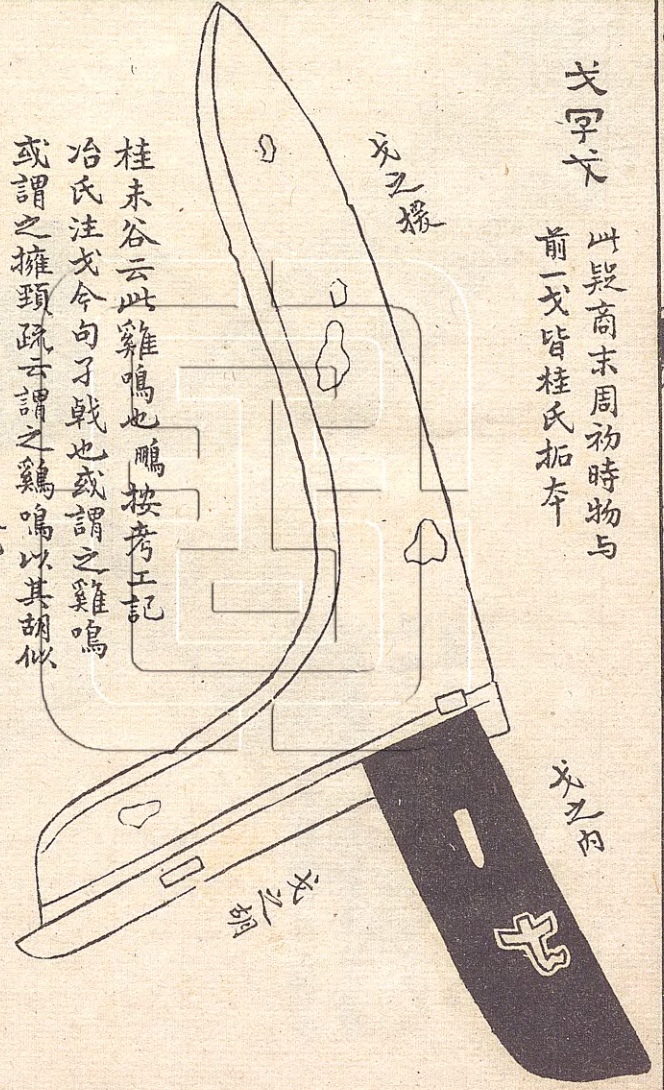 戈字戈
此疑商末周初時物与
前一戈皆桂氏拓本
戈之援
戈之内
戈之胡
桂未谷云此雞鳴也鵬按考工記
冶氏注戈今句孑戟也或謂之雞鳴
或謂之擁頸疏云謂之鷄鳴以其胡似